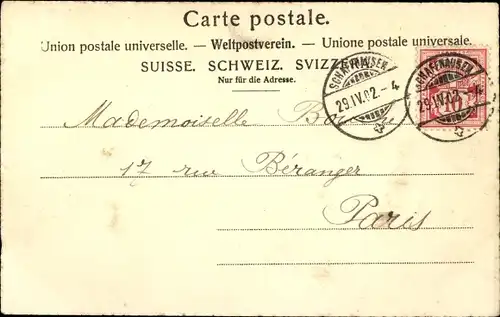 Carte postale.
Union postale universelle. — Weltpostverein. — Unione postale universale.
SUISSE. SCHWEIZ. SVIZZERA.
Nur für die Adresse.
SCHAFFHAUSEN
29.IV.02.-4
SCHAFFHAUSEN
29.IV.02.-4
10
Mademoiselle
17 rue Béranger
Paris